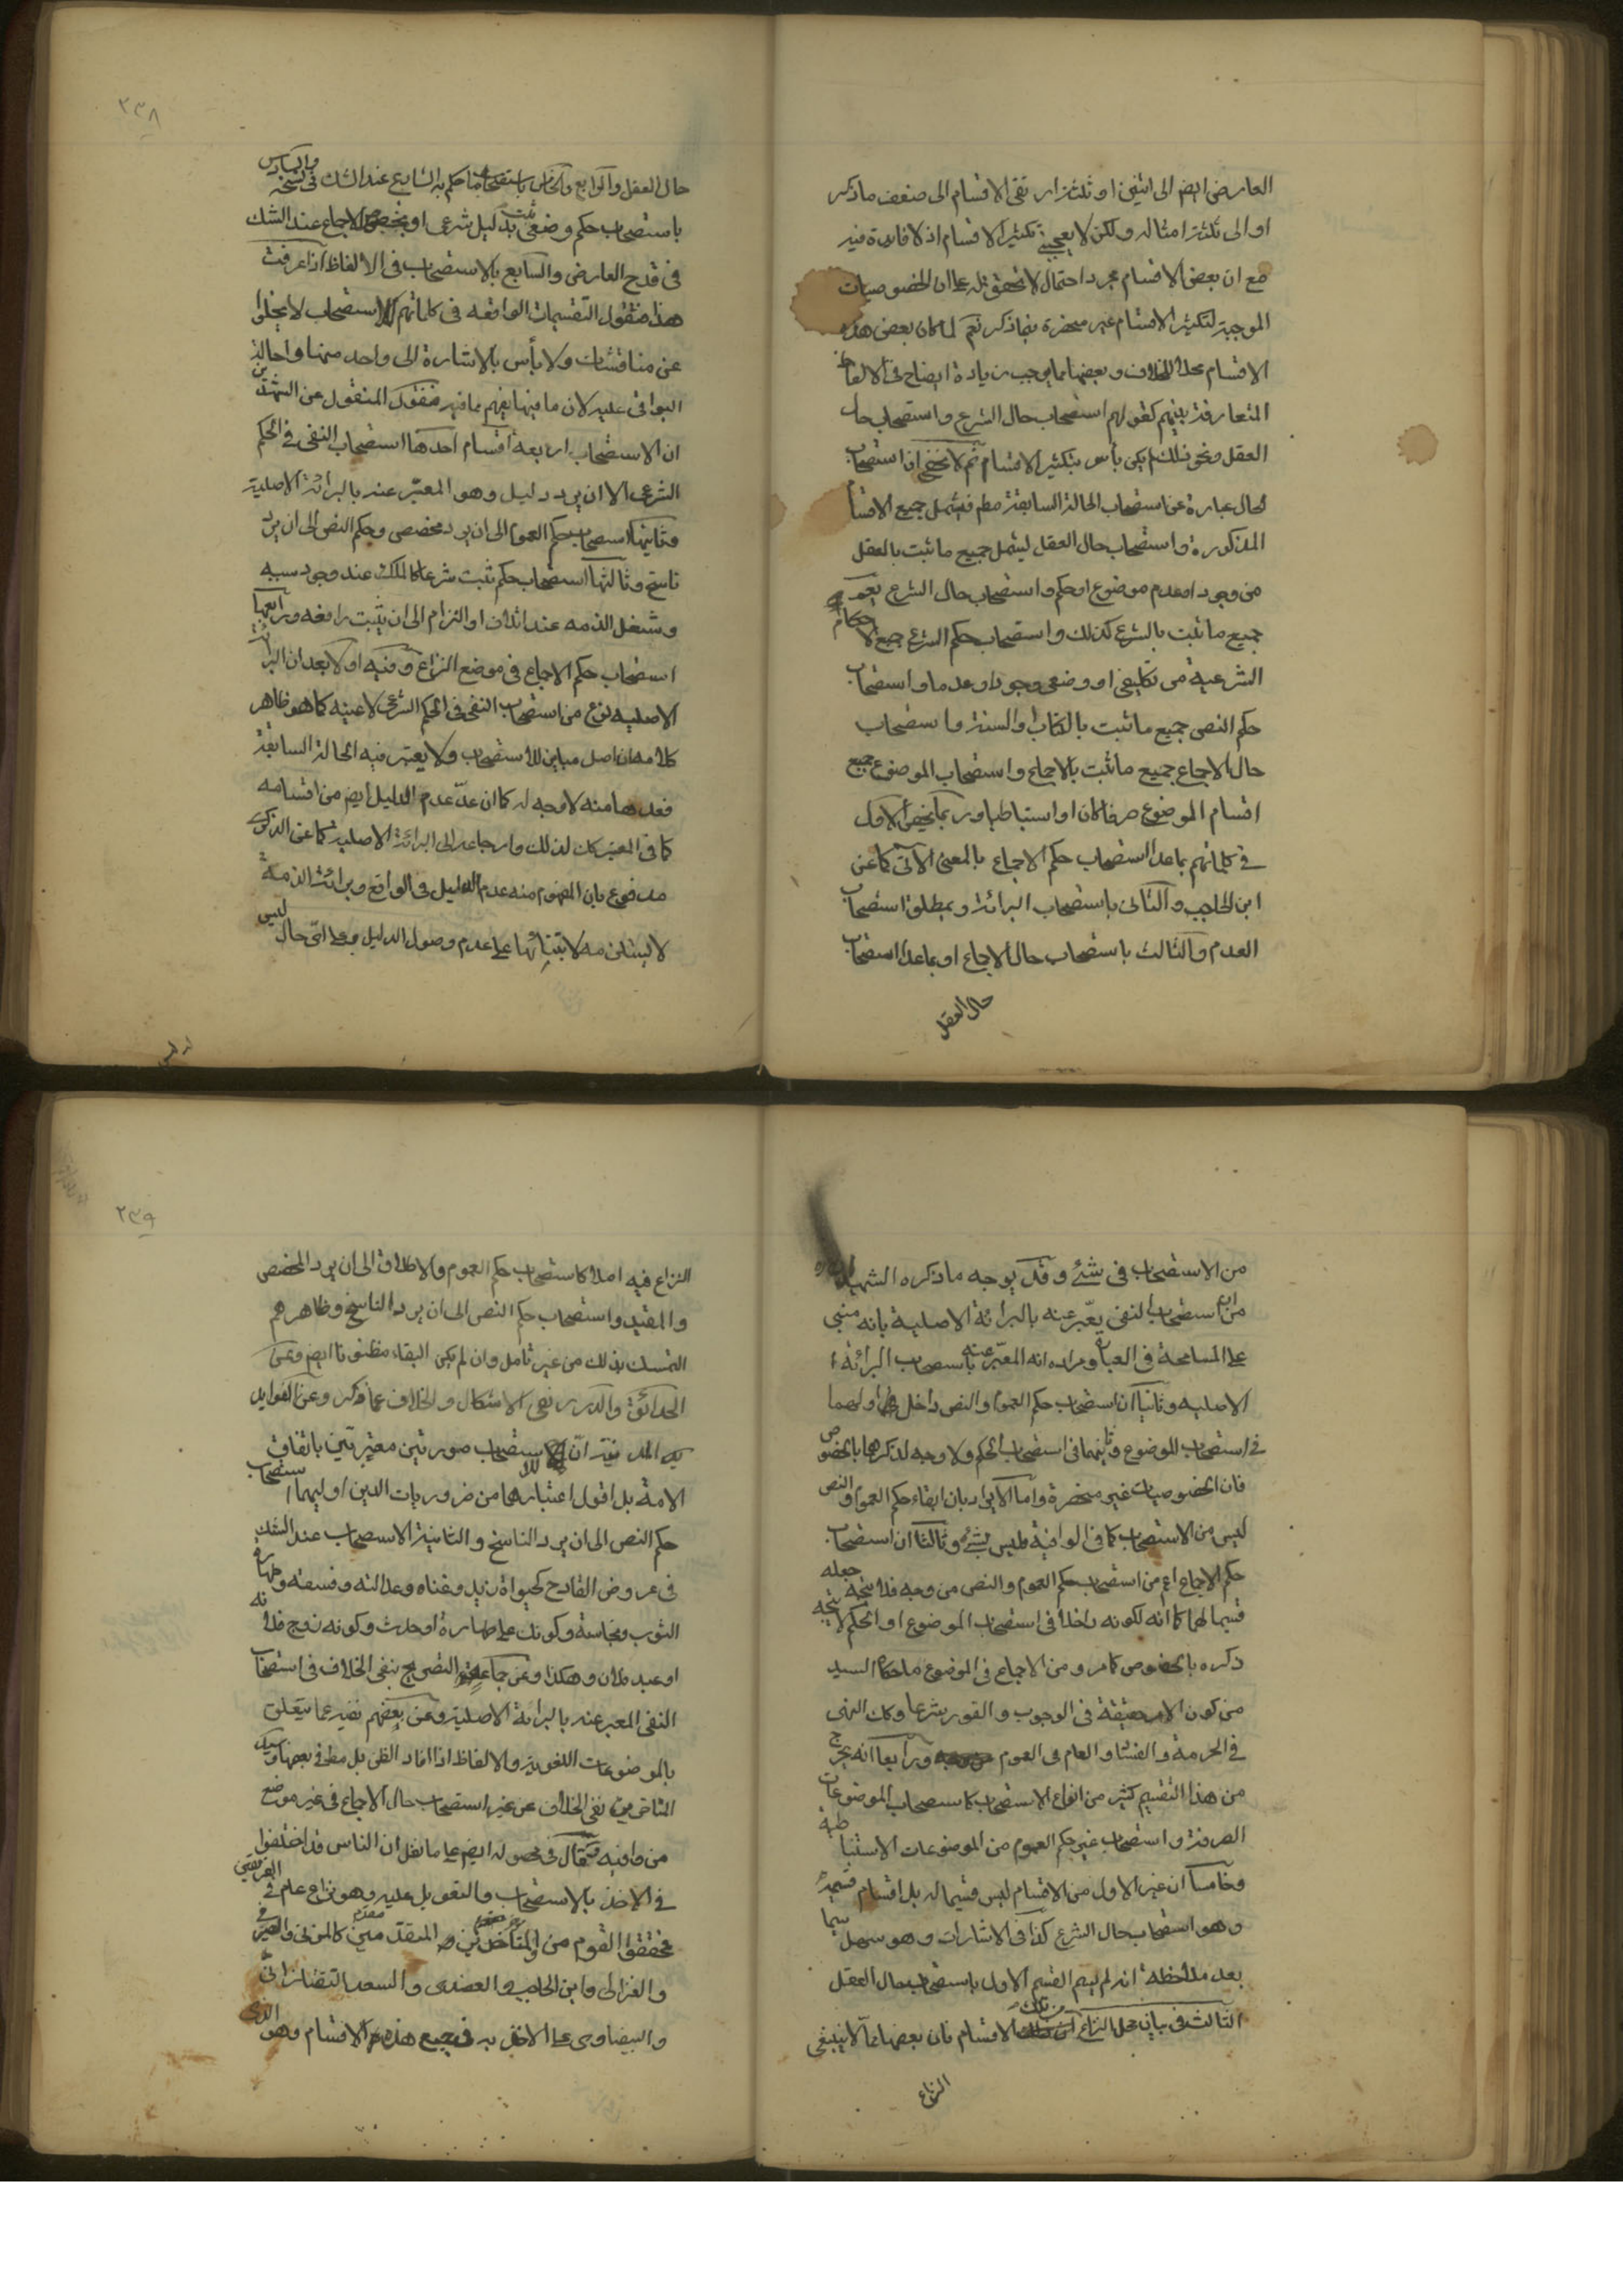 العارض ايض الى اثنين او ثلثة ارتقى الاقسام الى ضعف ما ذكر
او الى ثلثة امثاله ولكن لا يعجبنى تكثير الاقسام اذ لا فائدة فيه
مع ان بعض الاقسام مجرد احتمال لا تحقق له على ان الخصوصيات
الموجبة لتكثير الاقسام غير منحصرة بما ذكر نعم لما كان بعض هذه
الاقسام محل الخلاف وبعضها مما يوجب زيادة ايضاح فى الالفاظ
المتعارفة بينهم كقولهم استصحاب حال الشرع واستصحاب حال
العقل ونحو ذلك لم يكن بأس بتكثير الاقسام ثم لا يخفى ان استصحاب
الحال عبارة عن استصحاب الحالة السابقة مطم فيشمل جميع الاقسام
المذكورة واستصحاب حال العقل ليشمل جميع ما ثبت بالعقل
من وجود او عدم موضوع او حكم واستصحاب حال الشرع يعم
جميع ما ثبت بالشرع كذلك واستصحاب حكم الشرع جميع الاحكام
الشرعية من تكليفى او وضعى وجودا وعدما واستصحاب
حكم النص جميع ما ثبت بالكتاب والسنة واستصحاب
حال الاجماع جميع ما ثبت بالاجماع واستصحاب الموضوع جميع
اقسام الموضوع صرفا كان او استنباطيا وربما يخص الاول
فى كلماتهم بما عدا استصحاب حكم الاجماع بالمعنى الاتى كما عن
ابن الحاجب والثانى باستصحاب البرائة وبمطلق استصحاب
العدم والثالث باستصحاب حال الاجماع او بما عدا استصحاب
حال العقل
٢٣٨
حال العقل والرابع والخامس باستصحاب ما حكم به الشارع عند الشك فى نسخه والسادس
باستصحاب حكم وضعى ثبت بدليل شرعى او بخصوص الاجماع عند الشك
فى قدح العارض والسابع بالاستصحاب فى الالفاظ اذا عرفت
هذا فنقول التقسيمات الواقعه فى كلماتهم للاستصحاب لا يخلوا
عن مناقشات ولا بأس بالاشارة الى واحد منها واحالة
البواقى عليه لان ما فيها يفهم مما فيه فنقول المنقول عن الشهيدين
ان الاستصحاب اربعة اقسام احدها استصحاب النفى فى الحكم
الشرعى الا ان يرد دليل وهو المعبر عنه بالبرائة الاصلية
وثانيها استصحاب حكم العموم الى ان يرد مخصص وحكم النص الى ان يرد
ناسخ وثالثها استصحاب حكم ثبت شرعا كالملك عند وجود سببه
وشغل الذمه عند اتلاف او التزام الى ان يثبت رافعه ورابعها
استصحاب حكم الاجماع فى موضع النزاع وفيه اولا بعد ان البرائة
الاصليه نوع من استصحاب النفى فى الحكم الشرعى لا عينه كما هو ظاهر
كلامه ان اصل مباين للاستصحاب ولا يعتبر فيه الحالة السابقة
فعدها منه لا وجه له كما ان عدّ عدم الدليل ايض من اقسامه
كما فى المعتبر كك لذلك وارجاعه الى البرائة الاصلية كما عن الذكرى
مدفوع بان المفهوم منه عدم الدليل فى الواقع وبرائة الذمة
لا يستلزمه لابتنائها على عدم وصول الدليل وعلى اىّ حال ليس
من الاستصحاب فى شئ وقد يوجه ما ذكره الشهيد
من ان استصحاب النفى يعبّر عنه بالبرائة الاصلية بانه مبنى
على المسامحة فى العبارة ومراده انه المعبّر عنه باستصحاب البرائة
الاصليه وثانيا ان استصحاب حكم العموم والنص داخل اولهما
فى استصحاب الموضوع وثانيهما فى استصحاب الحكم ولا وجه لذكرهما بالخصوص
فان الخصوصيات غير منحصرة واما الايراد بان ابقاء حكم العموم والنص
ليس من الاستصحاب كما فى الوافية فليس بشئ وثالثا ان استصحاب
حكم الاجماع اعم من استصحاب حكم العموم والنص من وجه فلا يتجه جعله
قسيما لهما كما انه لكونه داخلا فى استصحاب الموضوع او الحكم لا يتجه
ذكره بالخصوص كما مر ومن الاجماع فى الموضوع ما حكاه السيد
من كون الامر حقيقة فى الوجوب والفور شرعا وكك النهى
فى الحرمة والفساد والعام فى العموم ورابعا انه يخرج
من هذا التقسيم كثير من انواع الاستصحاب كاستصحاب الموضوعات
الصرفة واستصحاب غير حكم العموم من الموضوعات الاستنباطية
وخامسا ان غير الاول من الاقسام ليس قسيما له بل اقسام قسيمه
وهو استصحاب حال الشرع كذا فى الاشارات وهو سهل سيما
بعد ملاحظة انه لم يسم القسم الاول باستصحاب حال العقل
الثالث فى بيان محل النزاع من تلك الاقسام فان بعضها مما لا ينبغى
النزاع
٢٣٩
النزاع فيه اصلا كاستصحاب حكم العموم والاطلاق الى ان يرد المخصص
والمقيد واستصحاب حكم النص الى ان يرد الناسخ وظاهرهم
التمسك بذلك من غير تأمل وان لم يكن البقاء مظنونا ايض وعن
الحدائق والدرر نفى الاشكال والخلاف عما ذكر وعن الفوايد
المدنية ان للاستصحاب صورتين معتبرتين باتفاق
الامة بل اقول اعتبارهما من ضروريات الدين اوليهما استصحاب
حكم النص الى ان يرد الناسخ والثانية الاستصحاب عند الشك
فى عروض القادح كحيوة زيد وغناه وعدالته وفسقه وطهارة
الثوب ونجاسته وكونك على طهارة او حدث وكونه زوج فلانه
او عبد فلان وهكذا وعن جماعة التصريح بنفى الخلاف فى استصحاب
النفى المعبر عنه بالبرائة الاصلية وعن بعضهم نفيه عما يتعلق
بالموضوعات اللغوية والالفاظ اذا افاد الظن بل مط فى بعضها وسيأتى
من نفى الخلاف عن غير استصحاب حال الاجماع فى غير موضع
من وافيه فقال فى محصوله ايض على ما نقل ان الناس قد اختلفوا
فى الاخذ بالاستصحاب والتعويل عليه وهو نزاع عام فى الفريقين
فمحققوا القوم من المتأخرين والمتقدمين كالمزنى والصيرفى
والغزالى وابن الحاجب والعضدى والسعد التفتازانى
والبيضاوى على الاخذ به فى جميع هذه الاقسام وهو الذى